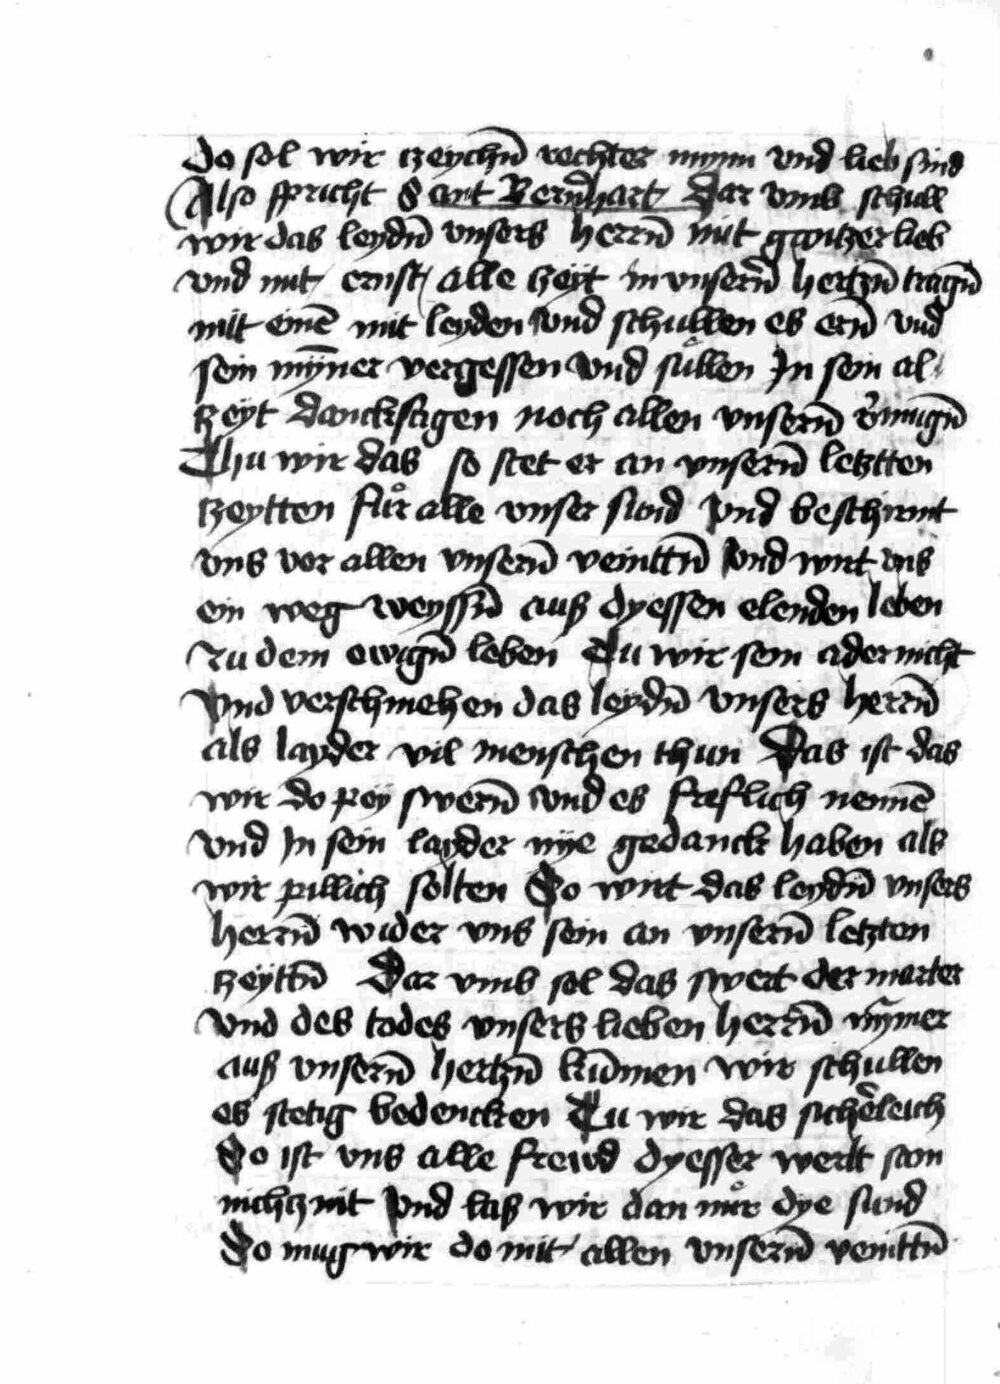 do sol wir tzeychn̄ rechter mynn vnd lieb sind
Also spricht Sant Bernhart Dar vmb schull
wir das leydn̄ vnsers herrn̄ mit gantzer lieb
vnd mit ernst alle tzeyt in vnsern̄ hertzn̄ tragn̄
mit einē mit leyden vnd schullen es ern̄ vnd
sein nym̄er vergessen vnd sullen In sein al
tzeyt danckſagen noch allen vnsern̄ v̄mugn̄
Thu wir das so stet er an vnsern̄ letztten
tzeytten fůr alle vnser sund vnd beschirmt
vns vor allen vnsern̄ veinttn̄ vnd wirt vns
ein weg weyssn̄ auß dyessen elenden leben
zu dem ewign̄ leben Tu wir sein ader nicht
vnd verschmehen das leydn̄ vnsers herrn̄
als layder vil menschen thun Das ist das
wir do pey swern̄ vnd es freflich nennē
vnd In sein layder nye gedanck haben als
wir pillich solten So wirt das leydn̄ vnsers
herrn̄ wider vns sein an vnsern̄ letzten
tzeyttn̄ Dar vmb sol das swert der marter
vnd des todes vnsers lieben herrn̄ nym̄er
auß vnsern̄ hertzn̄ kum̄en wir schullen
es stetig bedencken Tu wir das sicherleich
So ist vns alle frewd dyesser werlt sam
nichcz nit vnd laß wir dan nůr dye sund
So mug wir do mit allen vnsern̄ veinttn̄